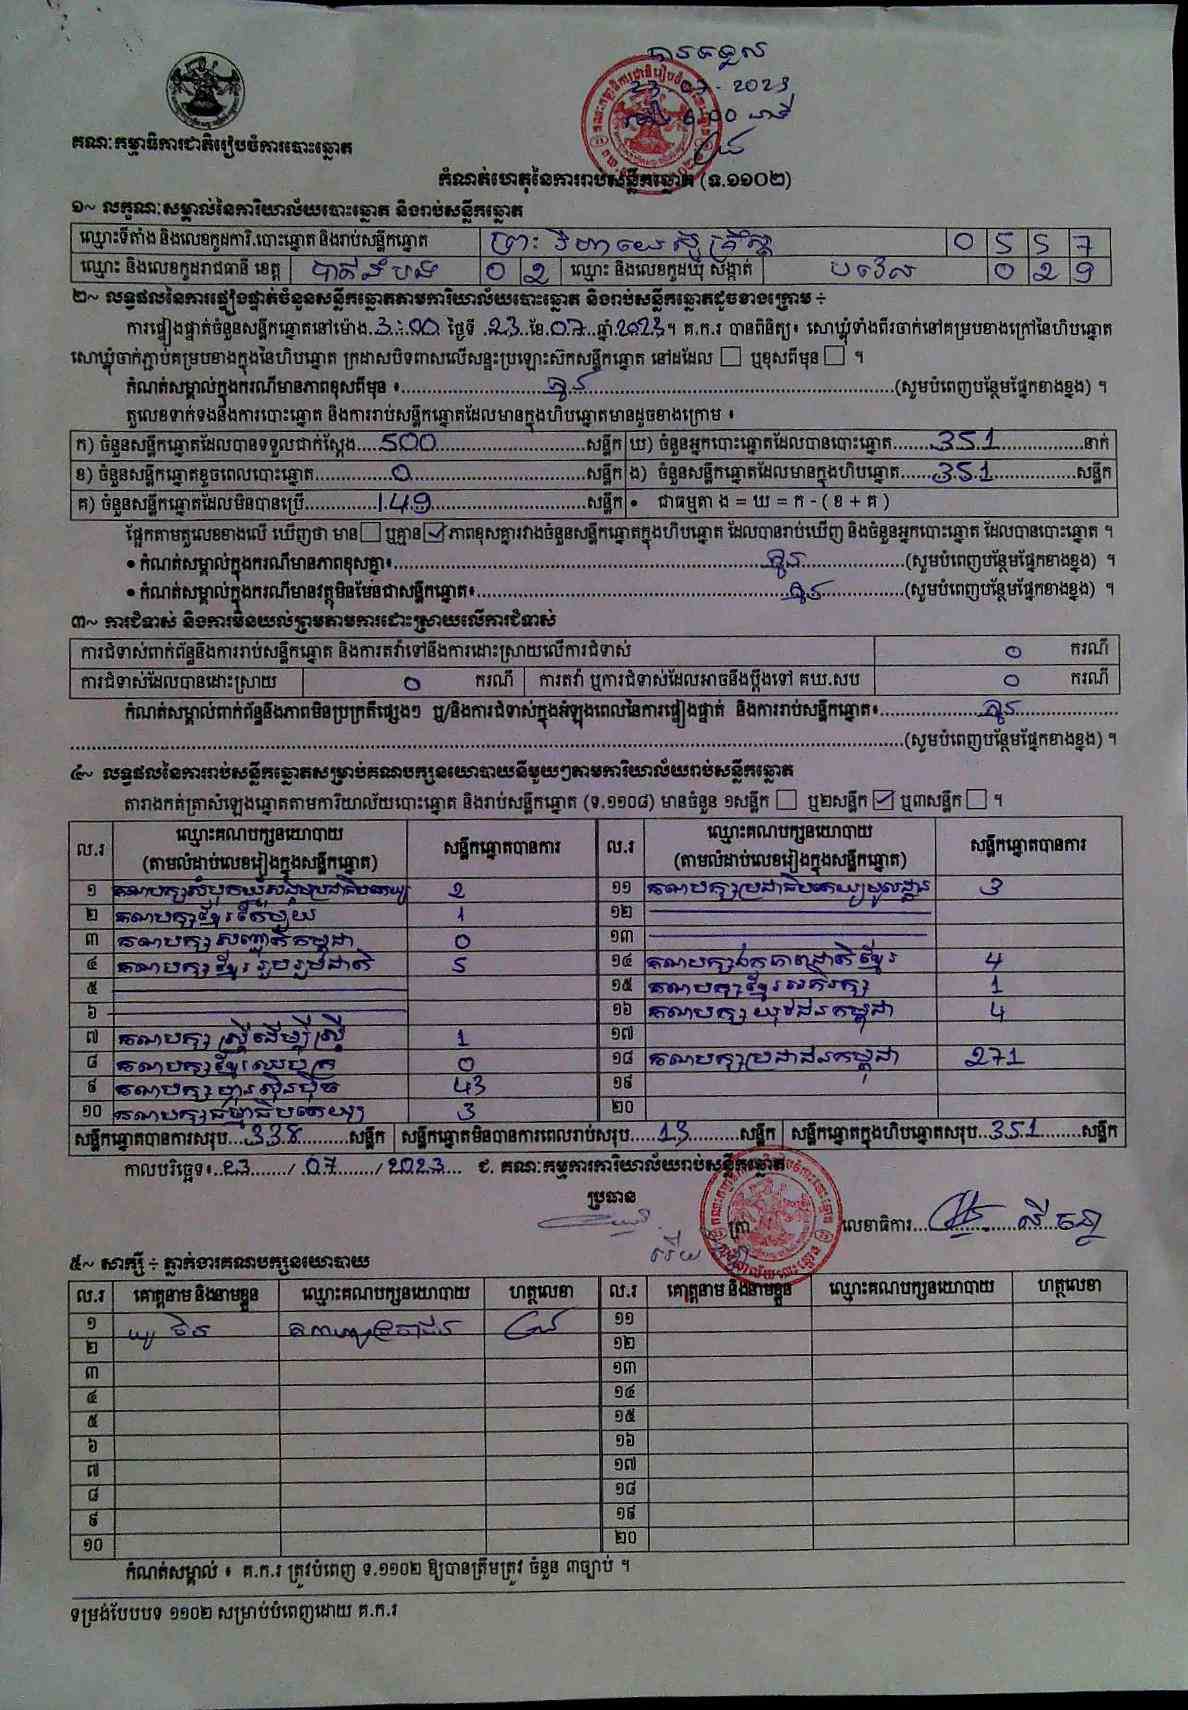 បានទទួល
23-07-2023
ម៉ោង 6:00 នាទី
គណៈកម្មាធិការជាតិរៀបចំការបោះឆ្នោត
កំណត់ហេតុនៃការរាប់សន្លឹកឆ្នោត (ទ.១១០២)
១~ លក្ខណៈសម្គាល់នៃការិយាល័យបោះឆ្នោត និងរាប់សន្លឹកឆ្នោត
ឈ្មោះទីតាំង និងលេខកូដការិ.បោះឆ្នោត និងរាប់សន្លឹកឆ្នោត ព្រះវិហារយេស៊ូគ្រីស្ត 0 5 5 7
ឈ្មោះ និងលេខកូដរាជធានី ខេត្ត បាត់ដំបង 0 2 ឈ្មោះ និងលេខកូដឃុំ សង្កាត់ បវេល 0 2 9
២~ លទ្ធផលនៃការផ្ទៀងផ្ទាត់ចំនួនសន្លឹកឆ្នោតតាមការិយាល័យបោះឆ្នោត និងរាប់សន្លឹកឆ្នោតដូចខាងក្រោម ÷
ការផ្ទៀងផ្ទាត់ចំនួនសន្លឹកឆ្នោតនៅម៉ោង 3:00 ថ្ងៃទី 23 ខែ 07 ឆ្នាំ 2023 ។ គ.ក.រ បានពិនិត្យ៖ សោឃ្លុំទាំងពីរចាក់នៅគម្របខាងក្រៅនៃហិបឆ្នោត
សោឃ្លុំចាក់ភ្ជាប់គម្របខាងក្នុងនៃហិបឆ្នោត ក្រដាសបិទពាសលើសន្ទះប្រឡោះស៊កសន្លឹកឆ្នោត នៅដដែល ☐ ឬខុសពីមុន ☐ ។
កំណត់សម្គាល់ក្នុងករណីមានភាពខុសពីមុន ៖ គ្មាន (សូមបំពេញបន្ថែមផ្នែកខាងខ្នង) ។
តួលេខទាក់ទងនឹងការបោះឆ្នោត និងការរាប់សន្លឹកឆ្នោតដែលមានក្នុងហិបឆ្នោតមានដូចខាងក្រោម ៖
ក) ចំនួនសន្លឹកឆ្នោតដែលបានទទួលជាក់ស្តែង 500 សន្លឹក ឃ) ចំនួនអ្នកបោះឆ្នោតដែលបានបោះឆ្នោត 351 នាក់
ខ) ចំនួនសន្លឹកឆ្នោតខូចពេលបោះឆ្នោត 0 សន្លឹក ង) ចំនួនសន្លឹកឆ្នោតដែលមានក្នុងហិបឆ្នោត 351 សន្លឹក
គ) ចំនួនសន្លឹកឆ្នោតដែលមិនបានប្រើ 149 សន្លឹក • ជាធម្មតា ង = ឃ = ក - ( ខ + គ )
ផ្អែកតាមតួលេខខាងលើ ឃើញថា មាន ☐ ឬគ្មាន ☑ ភាពខុសគ្នារវាងចំនួនសន្លឹកឆ្នោតក្នុងហិបឆ្នោត ដែលបានរាប់ឃើញ និងចំនួនអ្នកបោះឆ្នោត ដែលបានបោះឆ្នោត ។
• កំណត់សម្គាល់ក្នុងករណីមានភាពខុសគ្នា៖ គ្មាន (សូមបំពេញបន្ថែមផ្នែកខាងខ្នង) ។
• កំណត់សម្គាល់ក្នុងករណីមានវត្ថុមិនមែនជាសន្លឹកឆ្នោត៖ គ្មាន (សូមបំពេញបន្ថែមផ្នែកខាងខ្នង) ។
៣~ ការជំទាស់ និងការមិនយល់ព្រមតាមការដោះស្រាយលើការជំទាស់
ការជំទាស់ពាក់ព័ន្ធនឹងការរាប់សន្លឹកឆ្នោត និងការតវ៉ាទៅនឹងការដោះស្រាយលើការជំទាស់ 0 ករណី
ការជំទាស់ដែលបានដោះស្រាយ 0 ករណី ការតវ៉ា ឬការជំទាស់ដែលអាចនឹងប្តឹងទៅ គឃ.សប 0 ករណី
កំណត់សម្គាល់ពាក់ព័ន្ធនឹងភាពមិនប្រក្រតីផ្សេងៗ ឬ/និងការជំទាស់ក្នុងអំឡុងពេលនៃការផ្ទៀងផ្ទាត់ និងការរាប់សន្លឹកឆ្នោត៖ គ្មាន
(សូមបំពេញបន្ថែមផ្នែកខាងខ្នង) ។
៤~ លទ្ធផលនៃការរាប់សន្លឹកឆ្នោតសម្រាប់គណបក្សនយោបាយនីមួយៗតាមការិយាល័យរាប់សន្លឹកឆ្នោត
តារាងកត់ត្រាសំឡេងឆ្នោតតាមការិយាល័យបោះឆ្នោត និងរាប់សន្លឹកឆ្នោត (ទ.១១០៨) មានចំនួន ១សន្លឹក ☐ ឬ២សន្លឹក ☑ ឬ៣សន្លឹក ☐ ។
ល.រ ឈ្មោះគណបក្សនយោបាយ (តាមលំដាប់លេខរៀងក្នុងសន្លឹកឆ្នោត) សន្លឹកឆ្នោតបានការ ល.រ ឈ្មោះគណបក្សនយោបាយ (តាមលំដាប់លេខរៀងក្នុងសន្លឹកឆ្នោត) សន្លឹកឆ្នោតបានការ
១ គណបក្សសំបុកឃ្មុំសង្គមប្រជាធិបតេយ្យ 2 ១១ គណបក្សប្រជាធិបតេយ្យមូលដ្ឋាន 3
២ គណបក្សខ្មែរតែមួយ 1 ១២
៣ គណបក្សសញ្ជាតិកម្ពុជា 0 ១៣
៤ គណបក្សខ្មែររួបរួមជាតិ 5 ១៤ គណបក្សឯកភាពជាតិខ្មែរ 4
៥ ១៥ គណបក្សខ្មែរអភិរក្ស 1
៦ ១៦ គណបក្សយុវជនកម្ពុជា 4
៧ គណបក្សស្ត្រីដើម្បីស្ត្រី 1 ១៧
៨ គណបក្សខ្មែរឈប់ក្រ 0 ១៨ គណបក្សប្រជាជនកម្ពុជា 271
៩ គណបក្សហ៊្វុនស៊ិនប៉ិច 43 ១៩
១០ គណបក្សធម្មាធិបតេយ្យ 3 ២០
សន្លឹកឆ្នោតបានការសរុប 338 សន្លឹក សន្លឹកឆ្នោតមិនបានការពេលរាប់សរុប 13 សន្លឹក សន្លឹកឆ្នោតក្នុងហិបឆ្នោតសរុប 351 សន្លឹក
កាលបរិច្ឆេទ៖ 23 / 07 / 2023 ជ. គណៈកម្មការការិយាល័យរាប់សន្លឹកឆ្នោត
ប្រធាន
ត្រា លេខាធិការ
៥~ សាក្សី ÷ ភ្នាក់ងារគណបក្សនយោបាយ
ល.រ គោត្តនាម និងនាមខ្លួន ឈ្មោះគណបក្សនយោបាយ ហត្ថលេខា ល.រ គោត្តនាម និងនាមខ្លួន ឈ្មោះគណបក្សនយោបាយ ហត្ថលេខា
១ ១១
២ ១២
៣ ១៣
៤ ១៤
៥ ១៥
៦ ១៦
៧ ១៧
៨ ១៨
៩ ១៩
១០ ២០
កំណត់សម្គាល់ ៖ គ.ក.រ ត្រូវបំពេញ ទ.១១០២ ឱ្យបានត្រឹមត្រូវ ចំនួន ៣ច្បាប់ ។
ទម្រង់បែបបទ ១១០២ សម្រាប់បំពេញដោយ គ.ក.រ